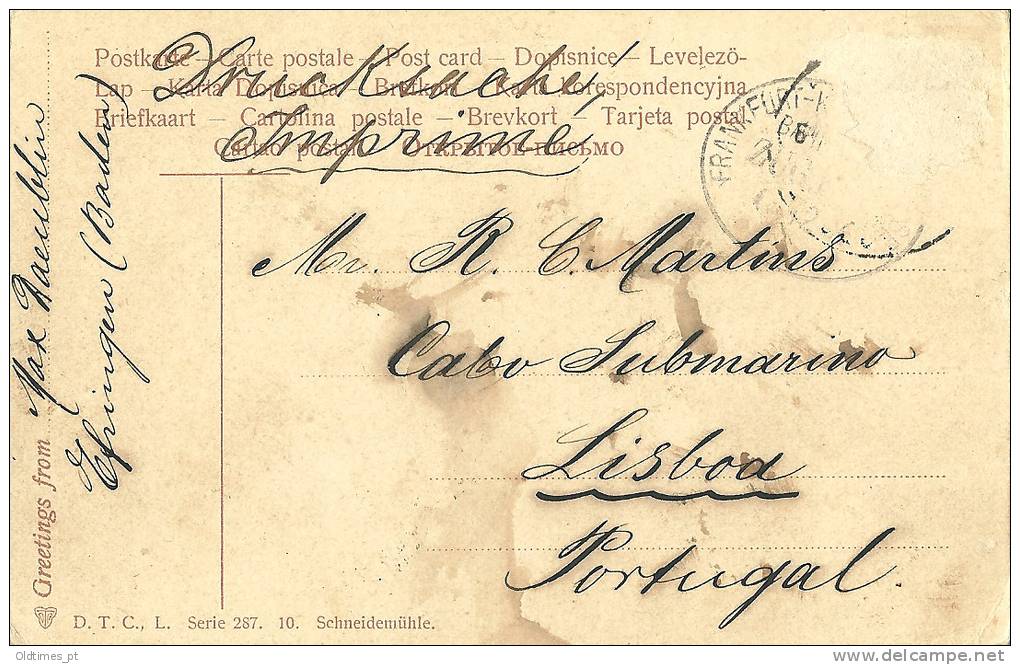 Postkarte – Carte postale – Post card – Dopisnice – Levelezö-
Lap – Karta Dopisnica – Brefkort – Karta korespondencyjna
Briefkaart – Cartolina postale – Brevkort – Tarjeta postal
Cartão postal – ОТКРЫТОЕ ПИСЬМО
Drucksache
Imprimé
FRANKFURT-
Mr. R. C. Martins
Cabo Submarino
Lisboa
Portugal.
Greetings from
Max Daeublin
Efringen (Baden)
D. T. C., L. Serie 287. 10. Schneidemühle.
Oldtimes_pt
delcampe.net